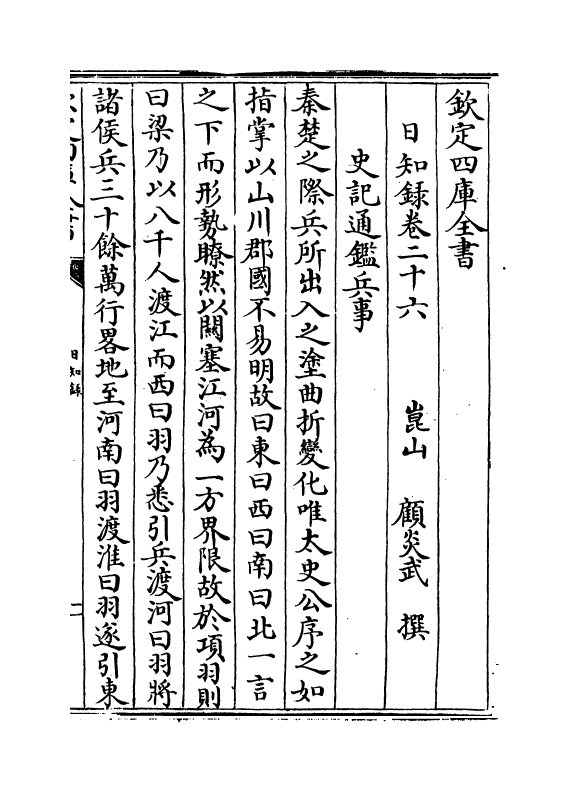 欽定四庫全書
日知録卷二十六 崑山 顧炎武 撰
史記通鑑兵事
秦楚之際兵所出入之塗曲折變化唯太史公序之如
指掌以山川郡國不易明故曰東曰西曰南曰北一言
之下而形勢瞭然以關塞江河為一方界限故於項羽則
曰梁乃以八千人渡江而西曰羽乃悉引兵渡河曰羽將
諸侯兵三十餘萬行畧地至河南曰羽渡淮曰羽遂引東
日知録